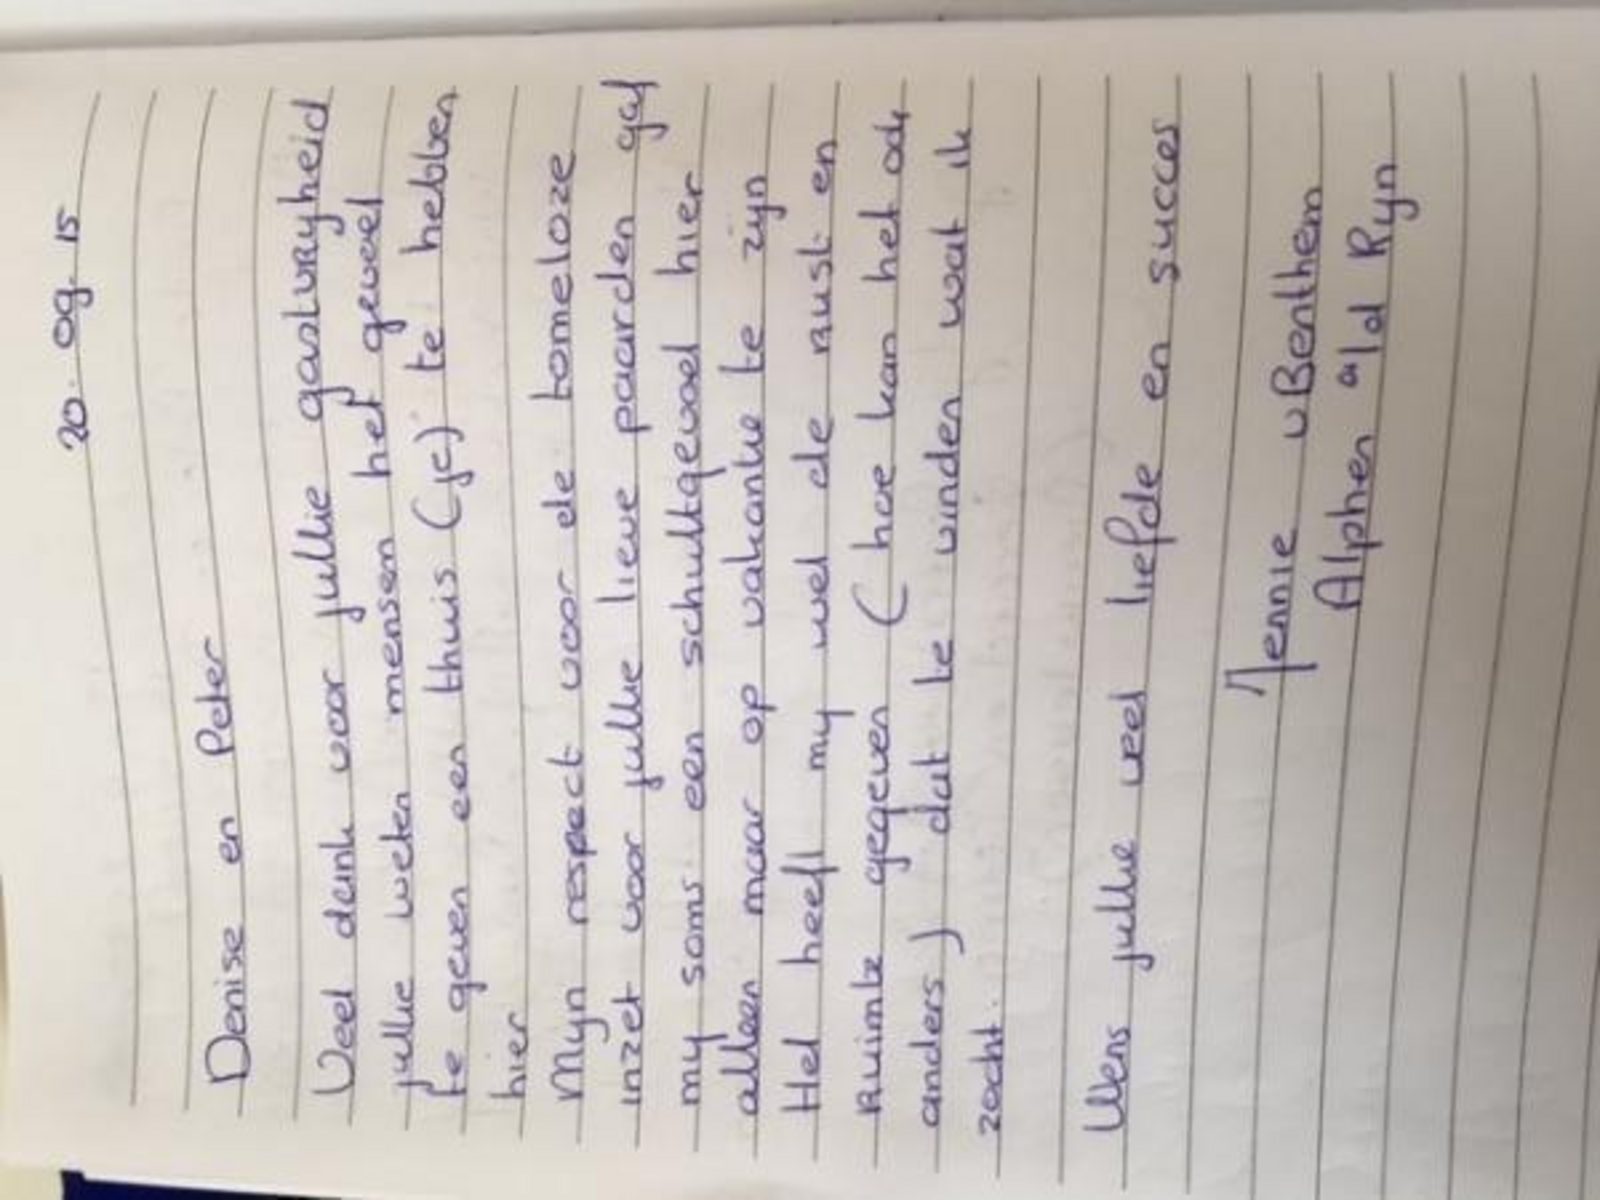 20. 09. 15
Denise en Peter
Veel dank voor jullie gastvryheid
jullie weten mensen het gevoel
te geven een thuis (je) te hebben
hier
Myn respect voor de tomeloze
inzet voor jullie lieve paarden gaf
my soms een schultgevoel hier
alleen maar op vakantie te zyn
Het heeft my wel de rust en
Ruimte gegeven ( hoe kan het ook
anders ) dat te vinden wat ik
zocht.
Wens jullie veel liefde en succes
Jennie v Benthem
Alphen a/d Ryn